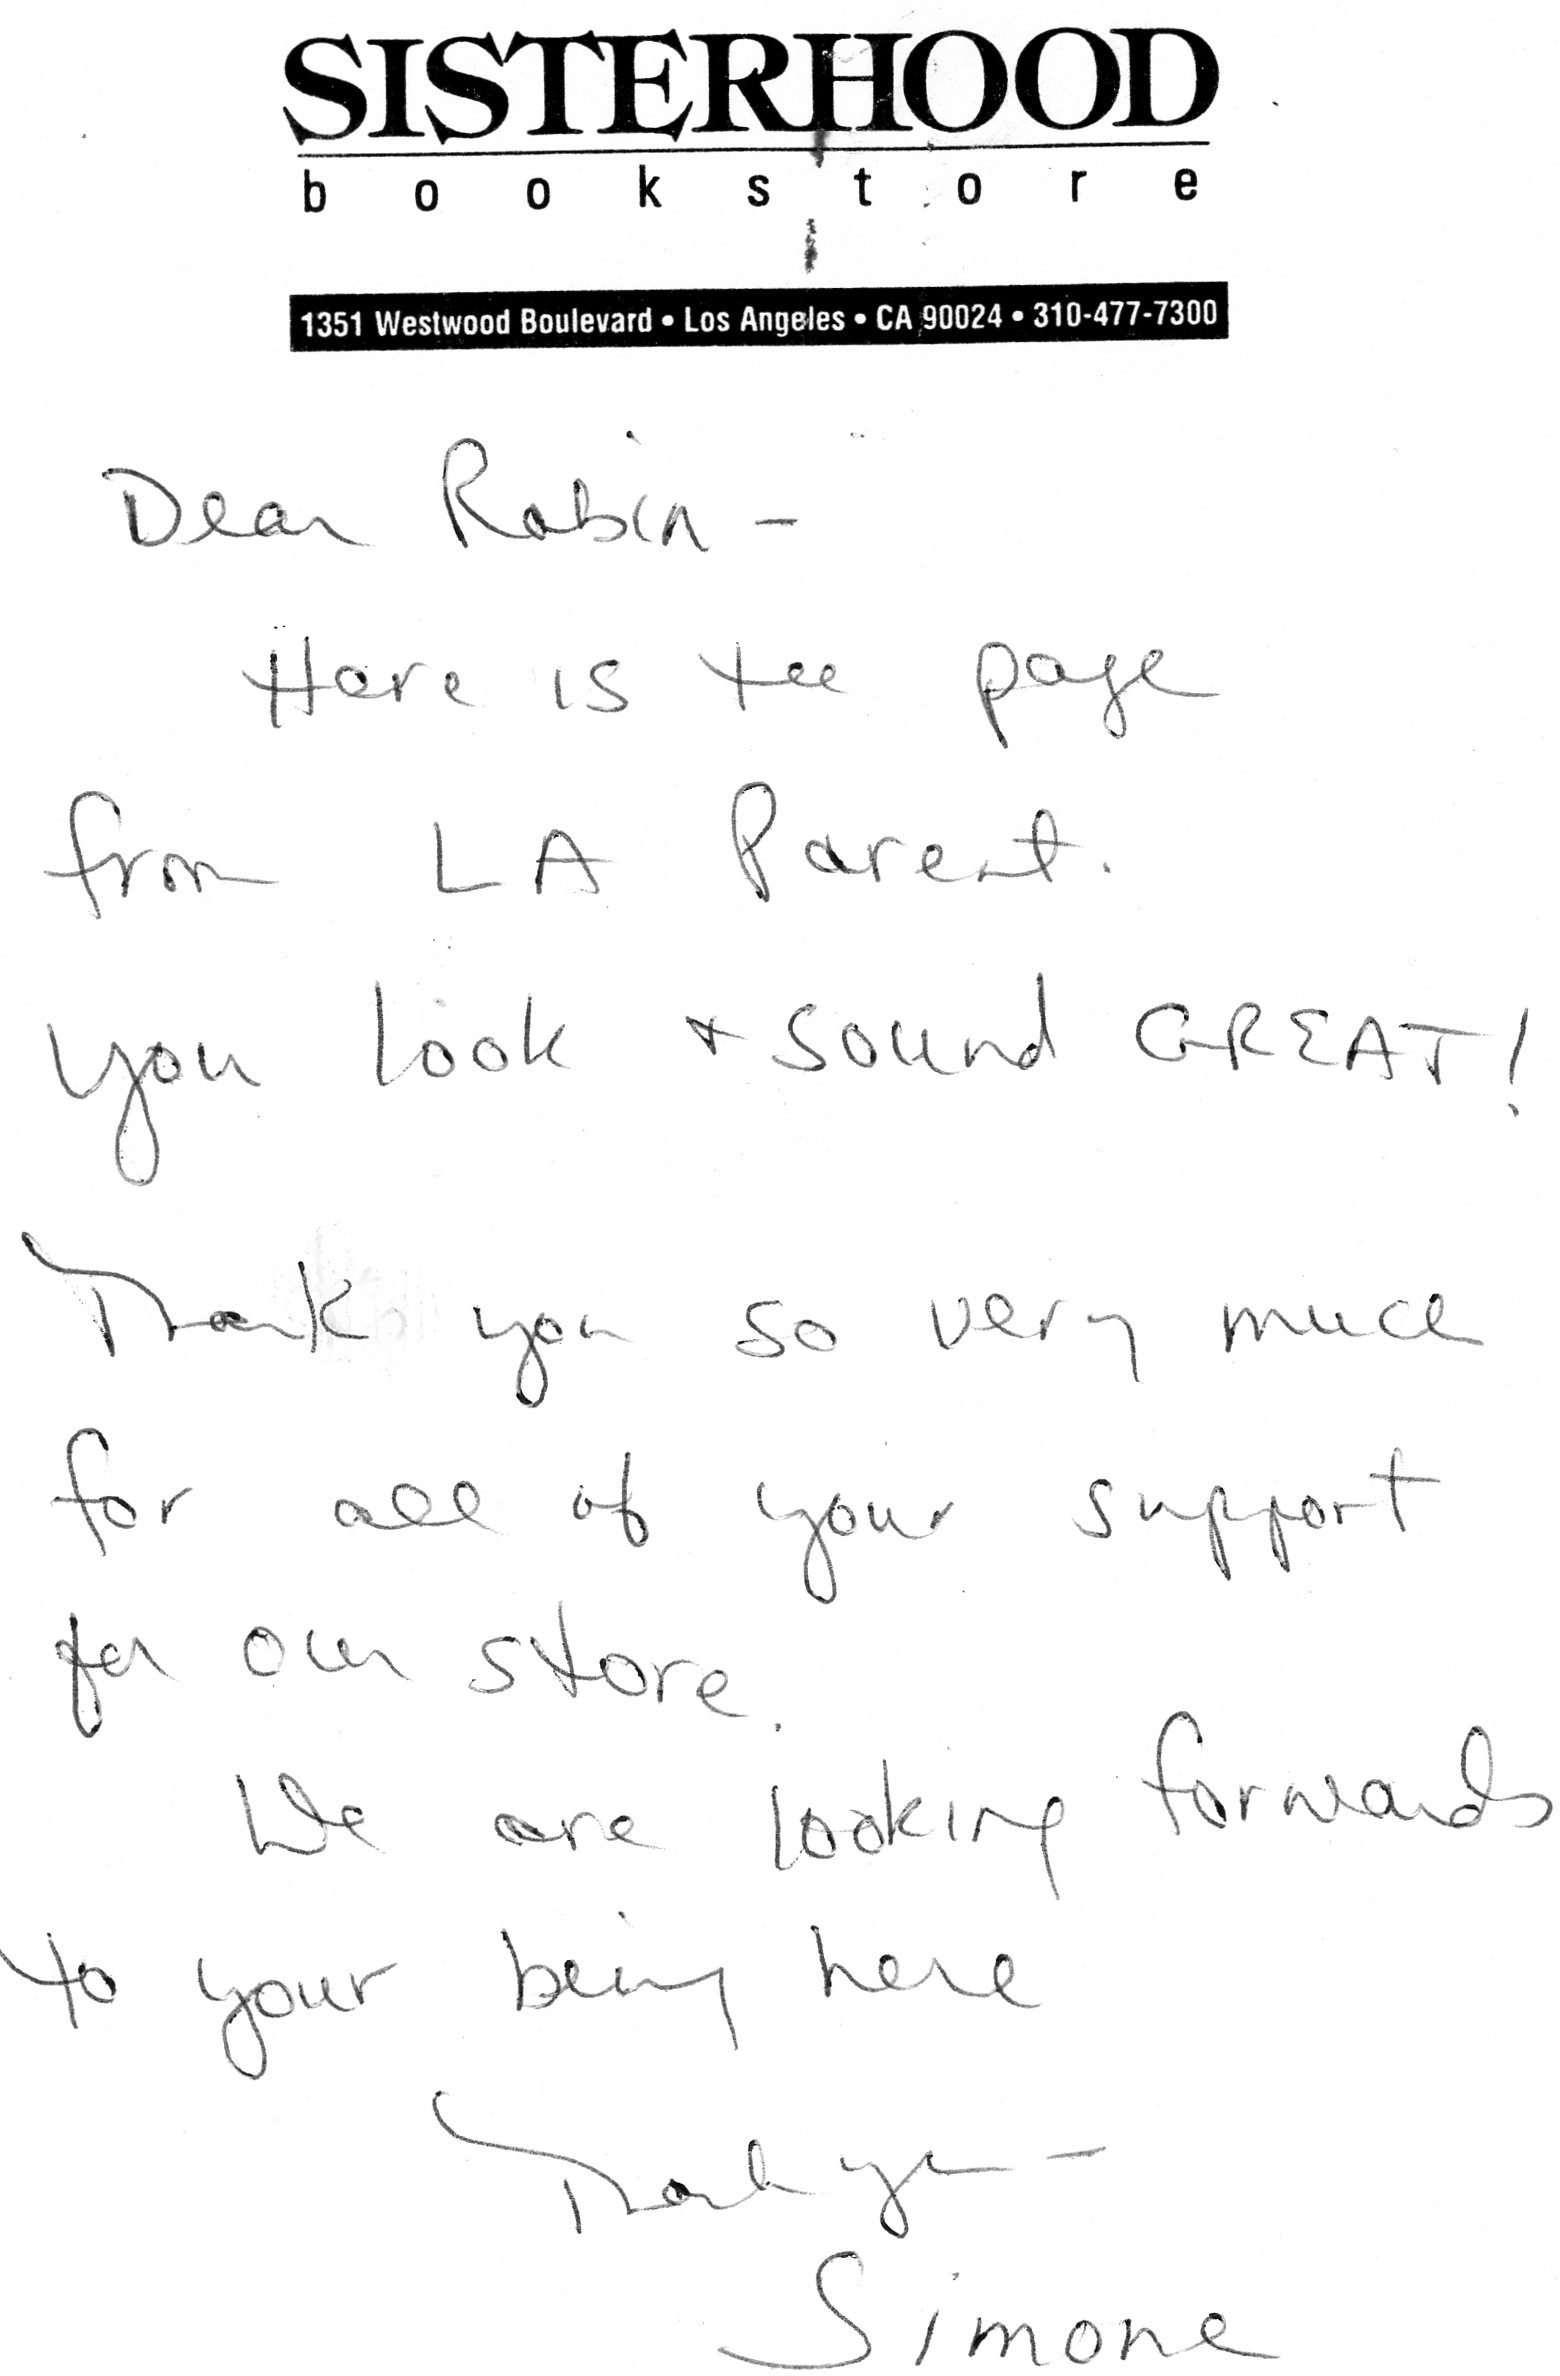 SISTERHOOD
bookstore
1351 Westwood Boulevard • Los Angeles • CA 90024 • 310-477-7300
Dear Robin -
Here is the page
from LA Parent.
you look + sound GREAT!
Thank you so very much
for all of your support
for our store.
We are looking forwards
to your being here
Thank you -
Simone